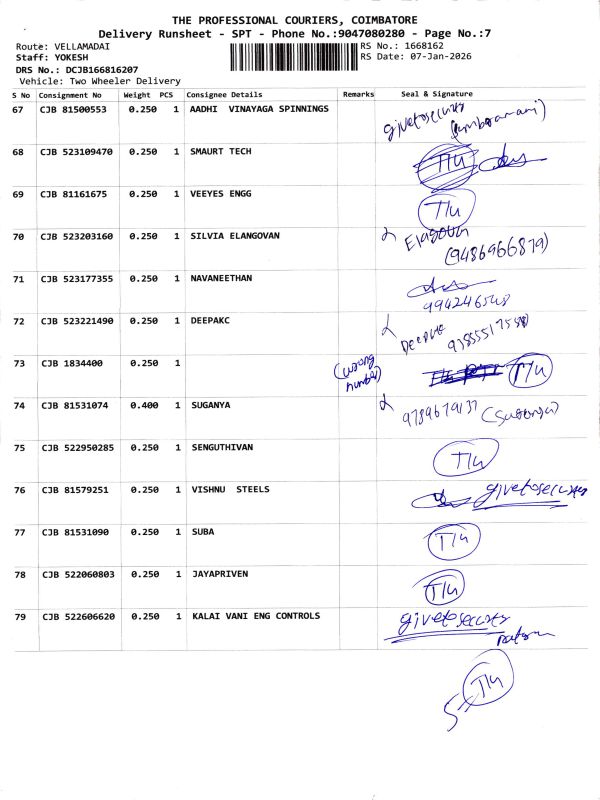 THE PROFESSIONAL COURIERS, COIMBATORE
Delivery Runsheet - SPT - Phone No.:9047080280 - Page No.:7
Route: VELLAMADAI RS No.: 1668162
Staff: YOKESH RS Date: 07-Jan-2026
DRS No.: DCJB166816207
Vehicle: Two Wheeler Delivery
S No Consignment No Weight PCS Consignee Details Remarks Seal & Signature
67 CJB 81500553 0.250 1 AADHI VINAYAGA SPINNINGS givetosecurity
68 CJB 523109470 0.250 1 SMAURT TECH T/u
69 CJB 81161675 0.250 1 VEEYES ENGG T/u
70 CJB 523203160 0.250 1 SILVIA ELANGOVAN
(9486966879)
71 CJB 523177355 0.250 1 NAVANEETHAN
72 CJB 523221490 0.250 1 DEEPAKC
73 CJB 1834400 0.250 1 (wrong number) T/u
74 CJB 81531074 0.400 1 SUGANYA 9789679137
75 CJB 522950285 0.250 1 SENGUTHIVAN T/u
76 CJB 81579251 0.250 1 VISHNU STEELS givetosecurity
77 CJB 81531090 0.250 1 SUBA T/u
78 CJB 522060803 0.250 1 JAYAPRIVEN T/u
79 CJB 522606620 0.250 1 KALAI VANI ENG CONTROLS givetosecurity
5-T/u